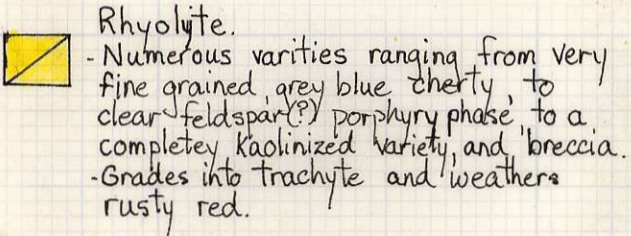 Rhyolyte.
- Numerous varities ranging from very
fine grained, grey blue cherty, to
clear feldspar(?) porphyry phase, to a
completey Kaolinized variety, and breccia.
- Grades into trachyte and weathers
rusty red.